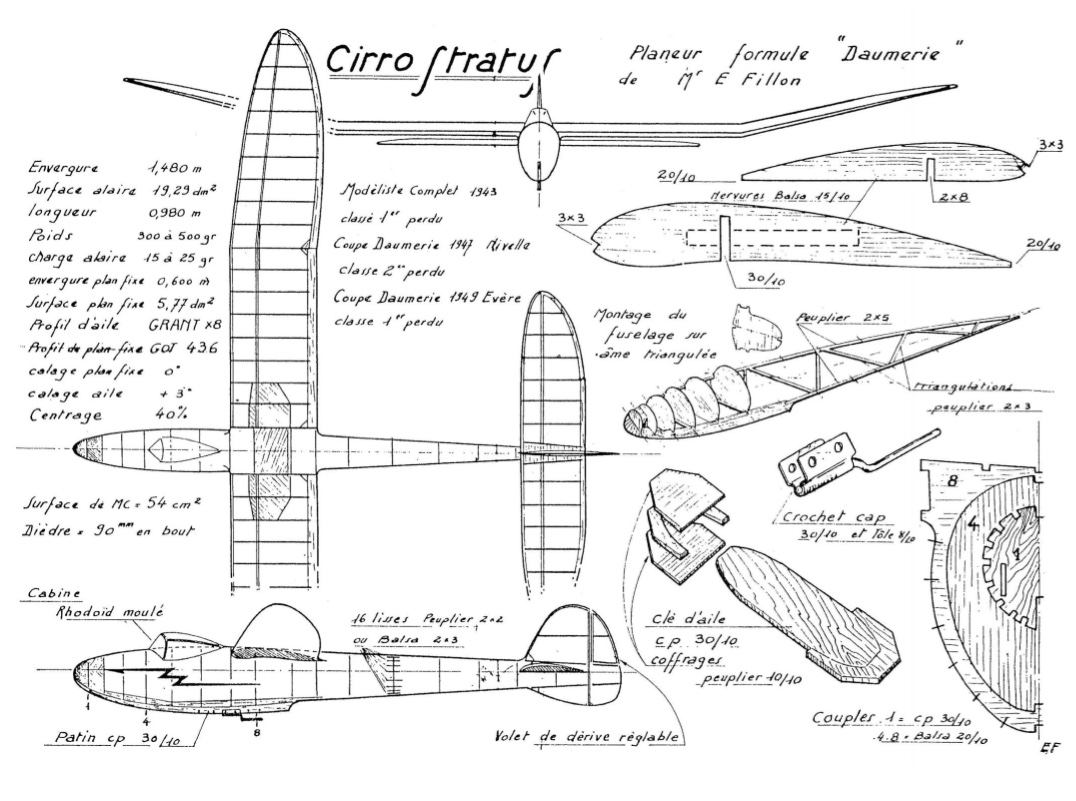 Cirro Stratus
Planeur formule "Daumerie"
de Mr E Fillon
Envergure 1,480 m
Surface alaire 19,29 dm²
longueur 0,980 m
Poids 300 à 500 gr
charge alaire 15 à 25 gr
envergure plan fixe 0,600 m
Surface plan fixe 5,77 dm²
Profil d'aile GRANT X8
Profil du plan fixe GOT 436
calage plan fixe 0°
calage aile + 3°
Centrage 40%
Surface de MC = 54 cm²
Dièdre = 90 mm en bout
Modèliste Complet 1943
classé 1er perdu
Coupe Daumerie 1947 Nivelle
classe 2e perdu
Coupe Daumerie 1949 Evère
classe 1er perdu
3x3
20/10
Nervures Balsa 15/10
2x8
3x3
20/10
30/10
Montage du
fuselage sur
âme triangulée
Peuplier 2x5
triangulations
peuplier 2x3
Crochet cap
30/10 et tôle 8/10
8
4
1
Clé d'aile
c.p 30/10
coffrages
peuplier 10/10
Couples 1 = cp 30/10
4.8 = Balsa 20/10
EF
Cabine
Rhodoïd moulé
16 lisses Peuplier 2x2
ou Balsa 2x3
1
4
8
Patin cp 30/10
Volet de dérive réglable